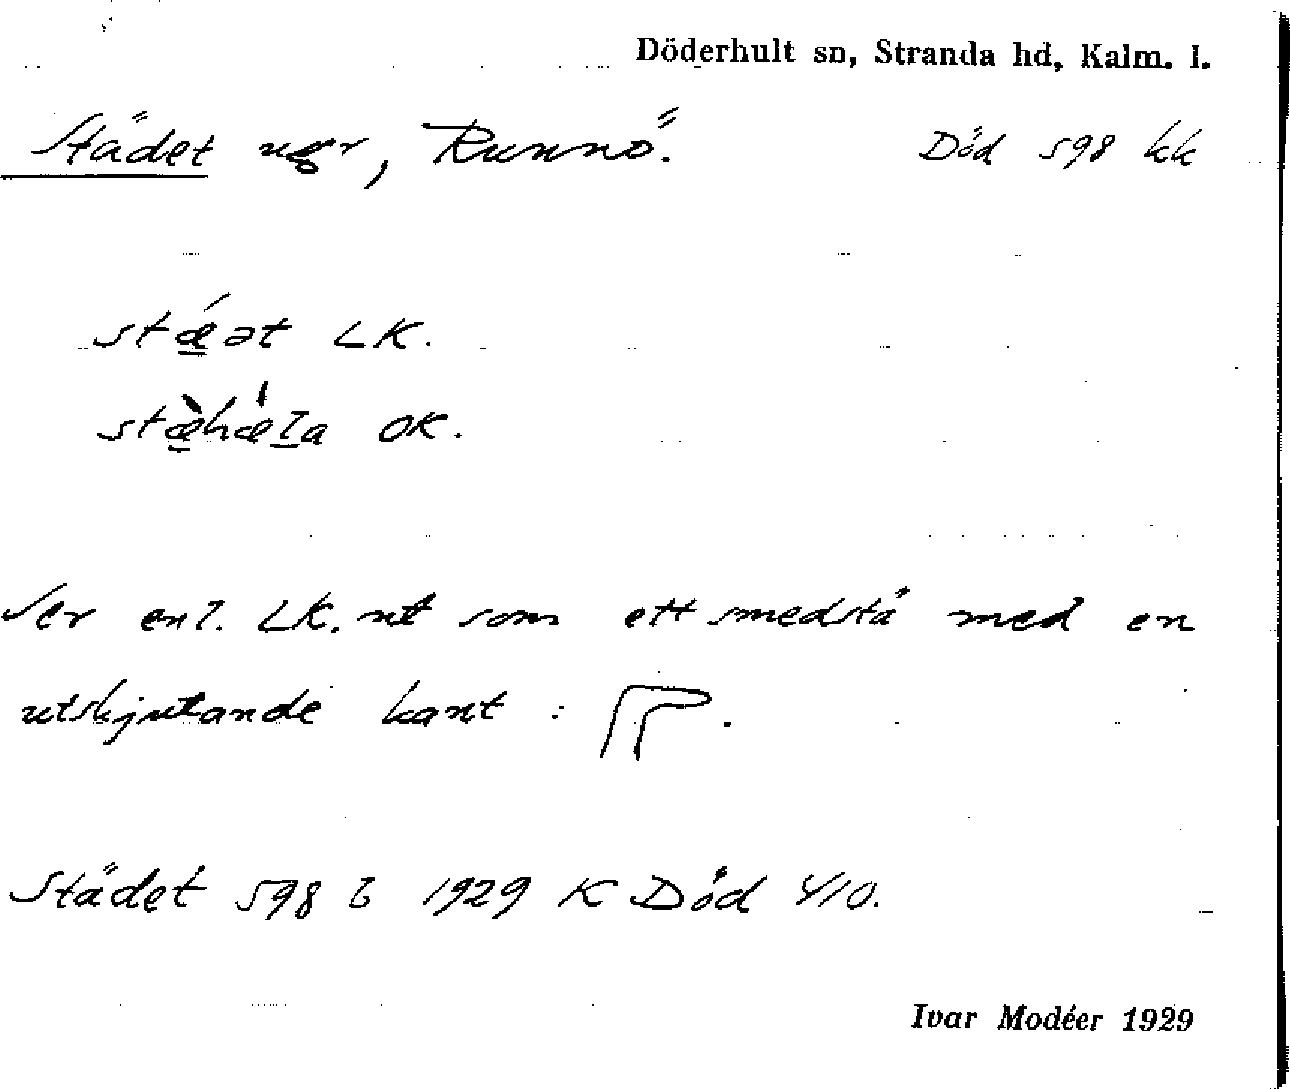 Döderhult sn, Stranda hd, Kalm. l.
Städet ugr, Runnö. Död 598 kk
stǽ̱ət LK.
stæ̱̀hæ̍l̲a OK.
Ser enl. LK. ut som ett smedstä med en
utskjutande kant : .
Städet 598 1929 K Död 410.
Ivar Modéer 1929